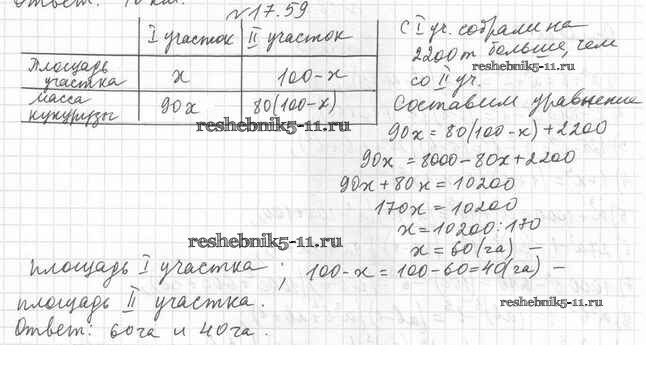 Ответ: 10 км.
№ 17.59
I участок II участок
Площадь участка x 100-x
масса кукурузы 90x 80(100-x)
С I уч. собрали на
2200т больше, чем
со II уч.
reshebnik5-11.ru
Составим уравнение
90x = 80(100-x)+2200
reshebnik5-11.ru
90x = 8000-80x+2200
90x+80x = 10200
170x = 10200
x = 10200:170
x = 60(га) –
reshebnik5-11.ru
площадь I участка ; 100-x = 100-60=40(га) –
площадь II участка.
reshebnik5-11.ru
Ответ: 60га и 40га.